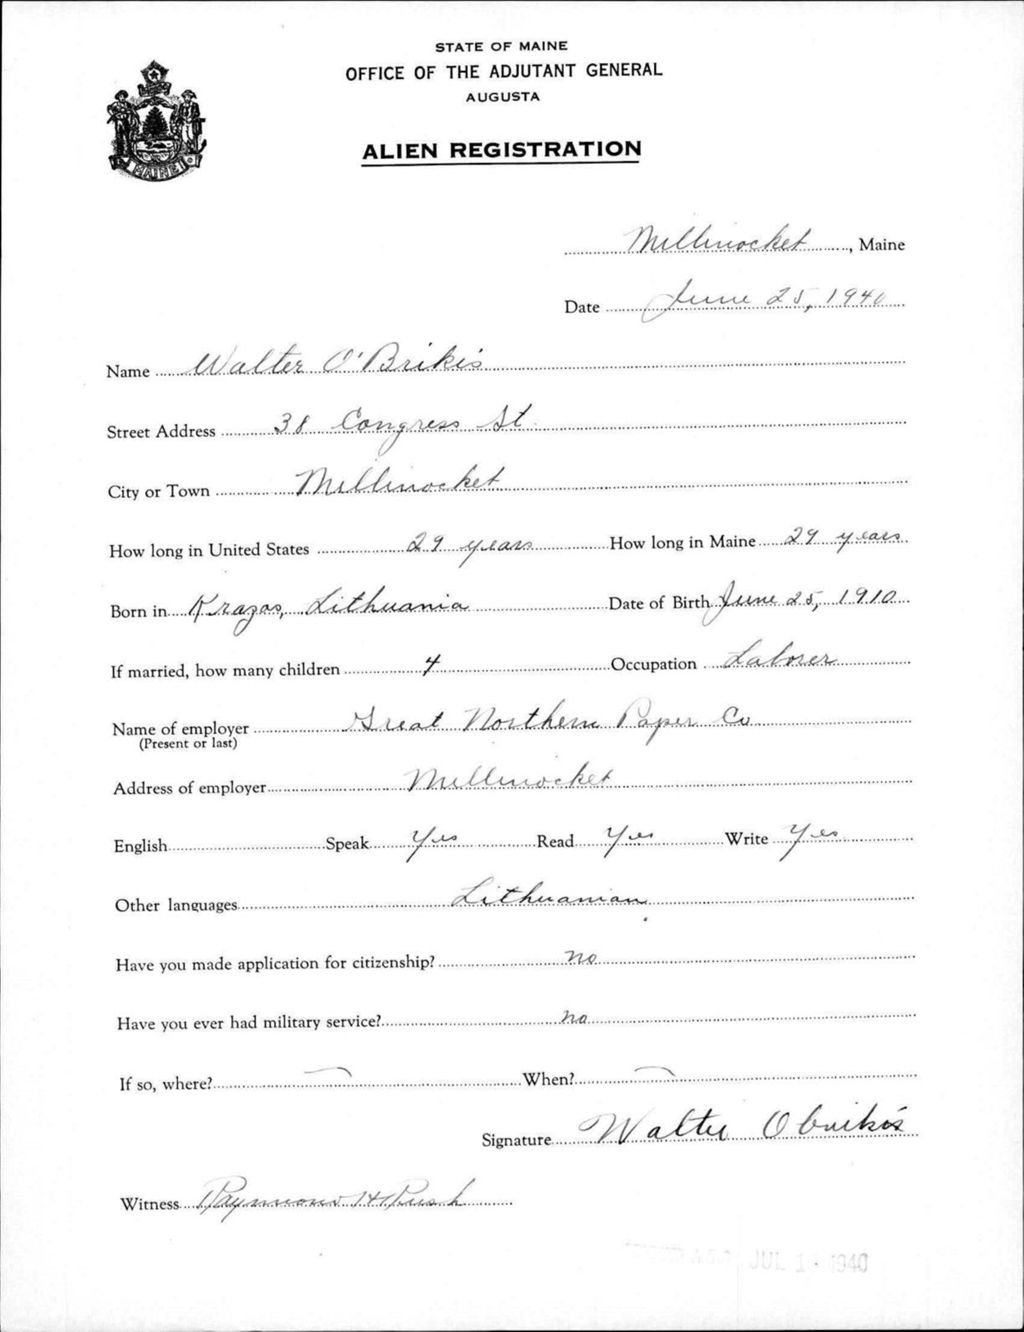 STATE OF MAINE
OFFICE OF THE ADJUTANT GENERAL
AUGUSTA
ALIEN REGISTRATION
MAINE
Millinocket, Maine
Date June 25, 1940
Name Walter O'Brikis
Street Address 38 Congress St.
City or Town Millinocket
How long in United States 29 years How long in Maine 29 years
Born in Krazas, Lithuania Date of Birth June 25, 1910
If married, how many children 4 Occupation Laborer
Name of employer Great Northern Paper Co
(Present or last)
Address of employer Millinocket
English Speak Yes Read Yes Write Yes
Other languages Lithuanian
Have you made application for citizenship? No
Have you ever had military service? no
If so, where? — When? —
Signature Walter Obrikis
Witness Raymond H Rush
JUL 1 - 1940